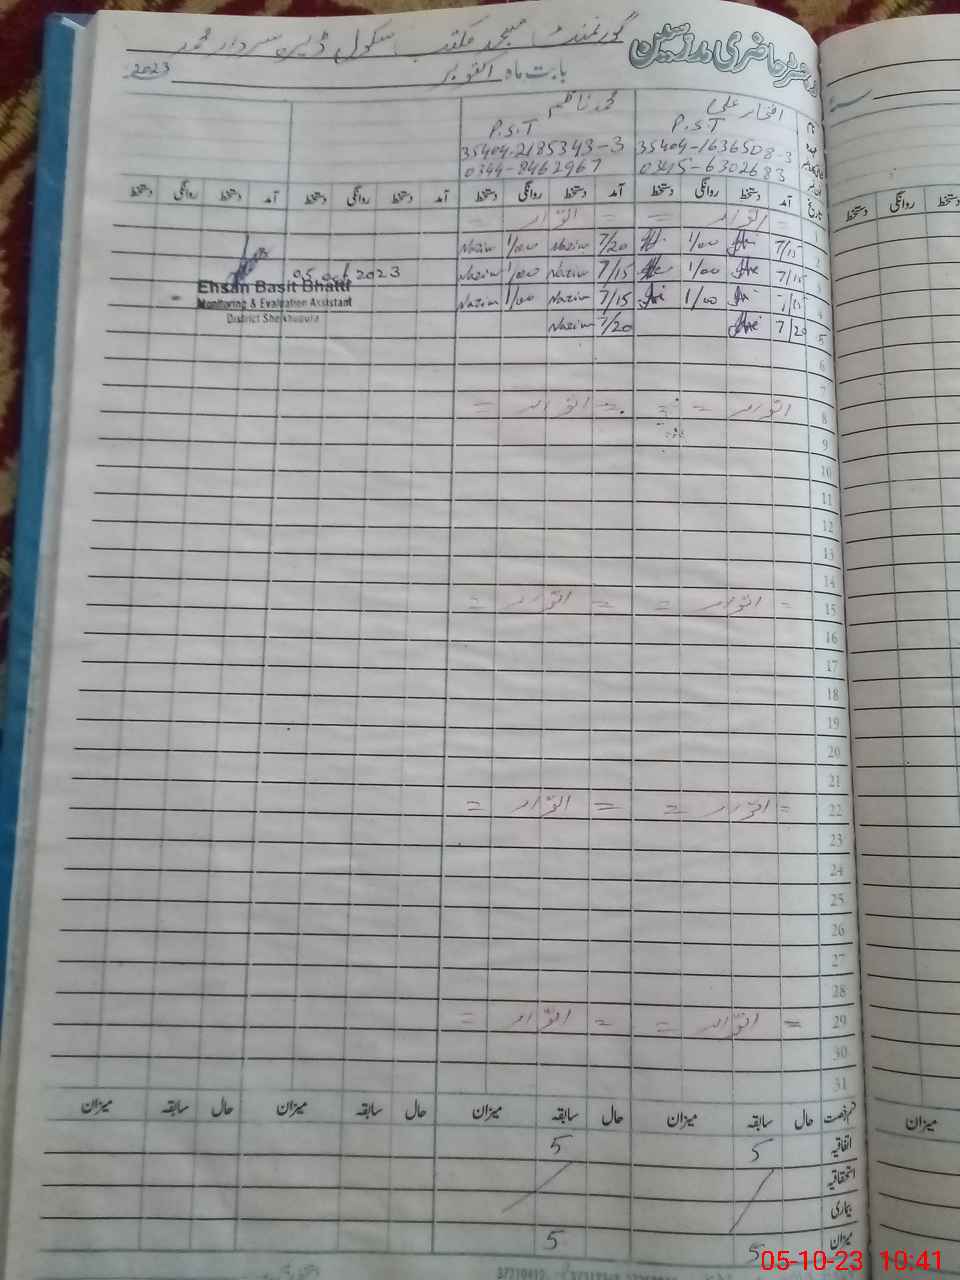 رجسٹر حاضری مدرسین گورنمنٹ مسجد مکتب سکول ڈیرہ سردار محمد
بابت ماہ اکتوبر 2023
نام افتخار علی محمد ناظم
P.S.T P.S.T
35404-1636508-3 35404-2185343-3
0345-6302683 0344-8462967
تاریخ آمد دستخط روانگی دستخط آمد دستخط روانگی دستخط آمد دستخط روانگی دستخط آمد دستخط روانگی دستخط
1 = اتوار = = اتوار =
2 7/15 1/00 7/20 Nazim 1/00 Nazim
3 7/15 1/00 7/15 Nazim 1/00 Nazim
4 7/15 1/00 7/15 Nazim 1/00 Nazim
5 7/20 7/20 Nazim
05 Oct 2023
Ehsan Basit Bhatti
Monitoring & Evaluation Assistant
District Sheikhupura
6
7
8 اتوار = = اتوار =
9
10
11
12
13
14
15 = اتوار = = اتوار =
16
17
18
19
20
21
22 = اتوار = = اتوار =
23
24
25
26
27
28
29 = اتوار = = اتوار =
30
31
قسم رخصت حال سابقہ میزان حال سابقہ میزان حال سابقہ میزان حال سابقہ میزان
اتفاقیہ 5 5
استحقاقیہ
بیماری
میزان 5 5
روانگی دستخط
میزان
05-10-23 10:41